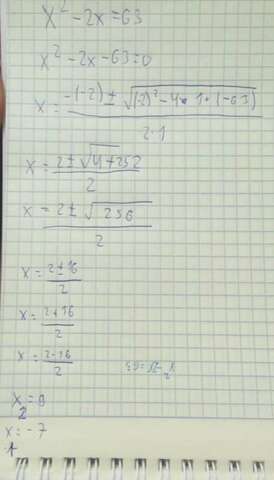 x² - 2x = 63
x² - 2x - 63 = 0
x = -(-2) ± √(2)² - 4 · 1 · (-63) / 2 · 1
x = 2 ± √4 + 252 / 2
x = 2 ± √256 / 2
x = 2 ± 16 / 2
x = 2 + 16 / 2
x = 2 - 16 / 2
x² - 2x = 63
x₂ = 9
x₁ = -7